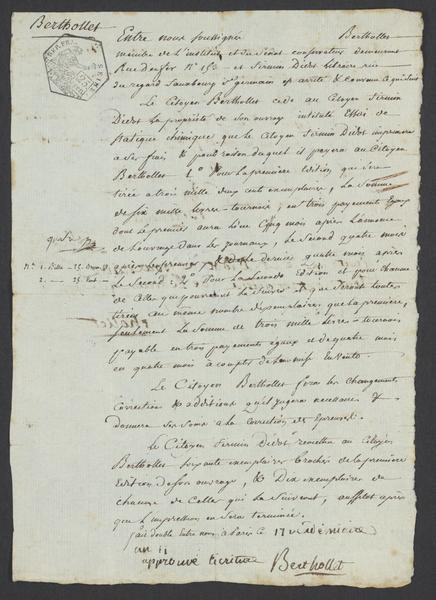 Berthollet
Entre nous soussignés Berthollet
membre de l'institut et du Sénat conservateur demeurant
Rue d'enfer n° 15 et Firmin Didot libraire rue
du regard faubourg St germain est arrêté & convenu ce qui suit
Le Citoyen Berthollet cede au Citoyen Firmin
Didot la propriété de son ouvrage intitulé Essai de
Statique chimique, que le Citoyen Firmin Didot imprimera
à ses frais & pour raison duquel il payera au Citoyen
Berthollet 1.° Pour la premiere Edition, qui sera
tirée à trois mille deux cent exemplaires, la somme
de six mille livres tournois, en trois payements égaux
dont le premier aura lieu cinq mois après l'annonce
de l'ouvrage dans les journaux, le Second quatre mois
après le premier & le dernier quatre mois après
le Second. 2.° Pour la Seconde Edition et pour chacune
de celles qui pourront la Suivre et qui seront toutes
tirées au même nombre d'exemplaires que la premiere,
seulement la Somme de trois mille livres tournois
payable en trois payements égaux et de quatre mois
en quatre mois à compter de la mise en vente.
Le Citoyen Berthollet fera les changements,
corrections & additions qu'il jugera necessaires &
donnera ses soins à la correction des Epreuves.
Le Citoyen Firmin Didot remettra au Citoyen
Berthollet soixante exemplaires brochés de la premiere
Edition de son ouvrage, & Dix exemplaires de
chacune de celles qui la Suivront, aussitot après
que l'impression en sera terminée.
fait double entre nous à Paris le 17 vendémiaire
an 11
approuvé l'écriture Berthollet